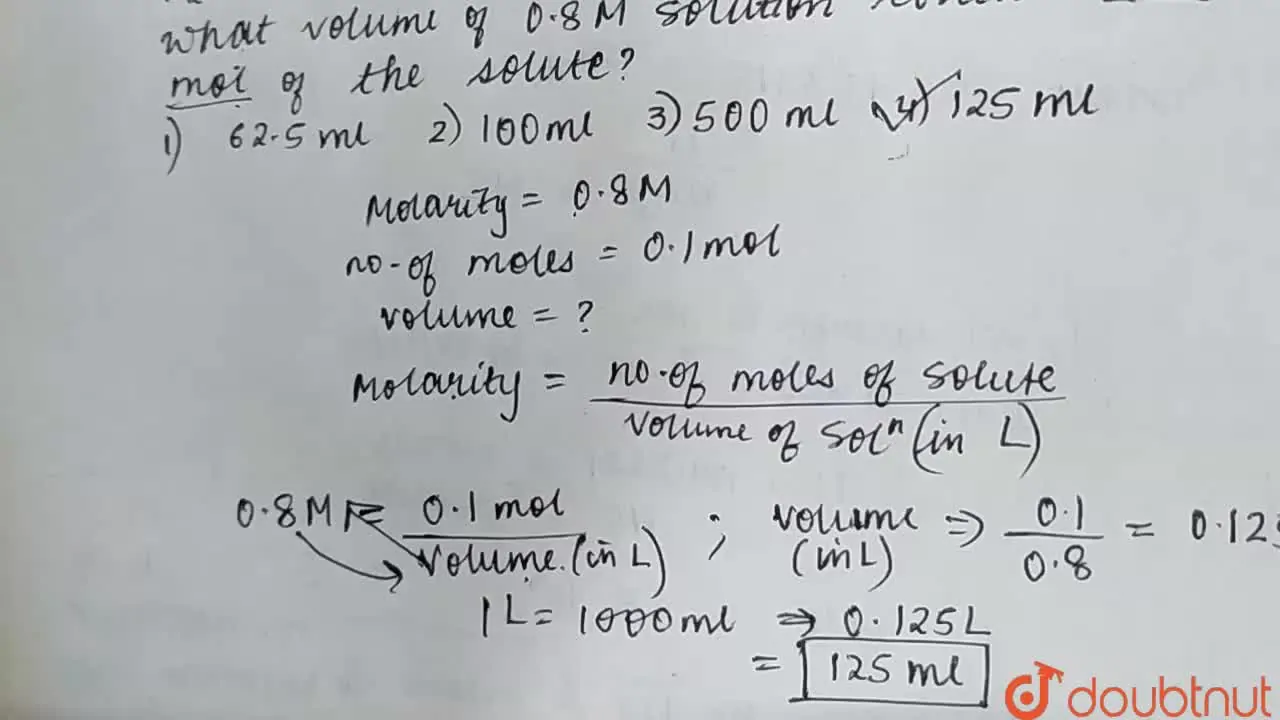 what volume of 0.8M solution
mol of the solute?
1) 62.5 ml 2) 100ml 3) 500 ml 4) 125 ml
Molarity = 0.8M
no-of moles = 0.1mol
volume = ?
Molarity = no.of moles of solute
volume of solⁿ (in L)
0.8M = 0.1 mol ; volume ⇒ 0.1 = 0.125
volume.(in L) (in L) 0.8
1L = 1000ml ⇒ 0.125L
= 125 ml
doubtnut